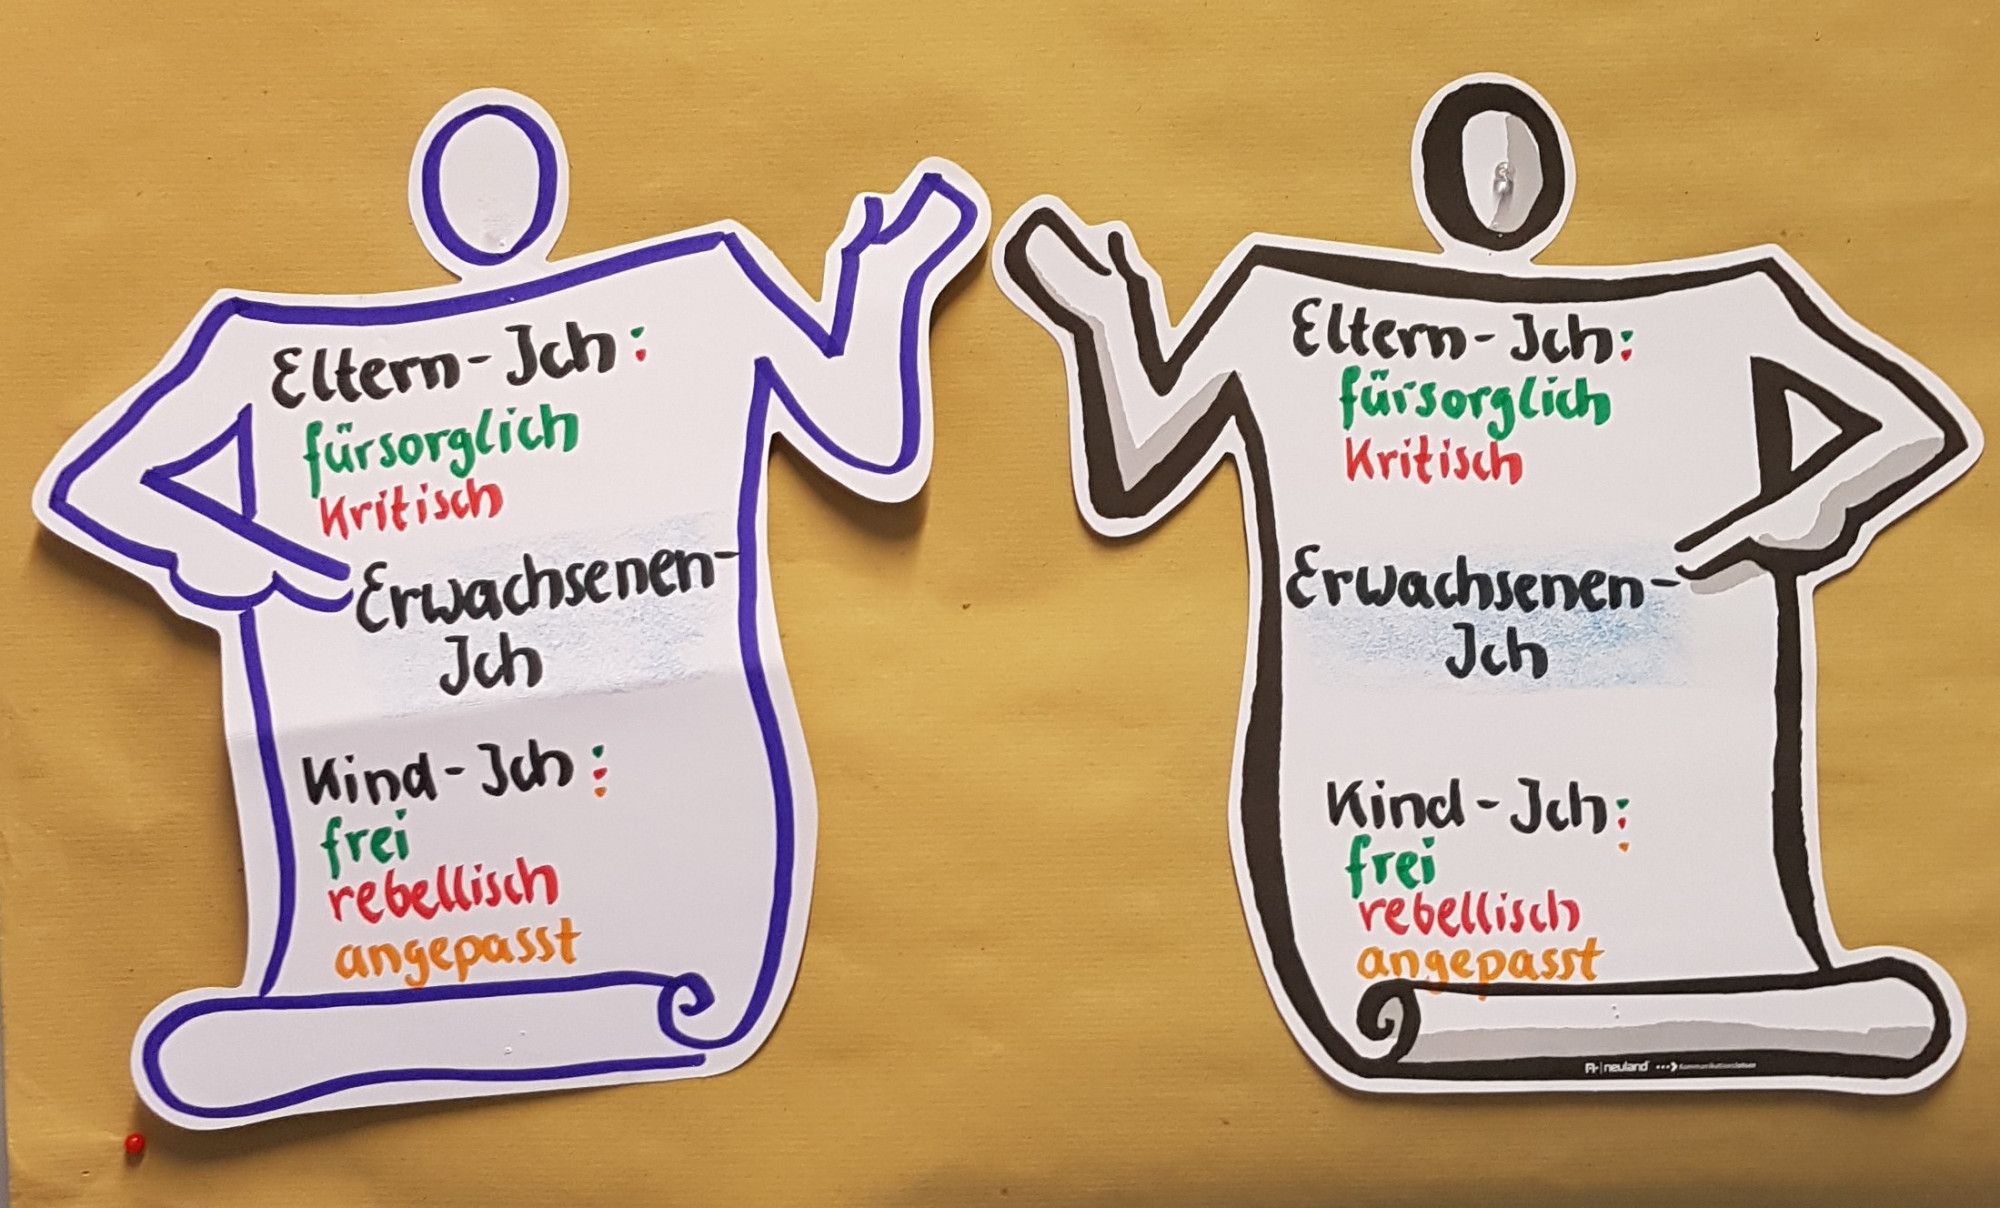 Eltern-Ich:
fürsorglich
Kritisch
Erwachsenen-
Ich
Kind-Ich:
frei
rebellisch
angepasst
Eltern-Ich:
fürsorglich
Kritisch
Erwachsenen-
Ich
Kind-Ich:
frei
rebellisch
angepasst
neuland